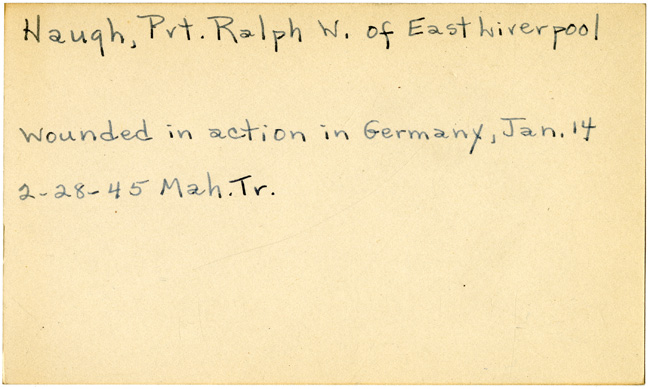 Haugh, Pvt. Ralph W. of East Liverpool
wounded in action in Germany, Jan. 14
2-28-45 Mah. Tr.